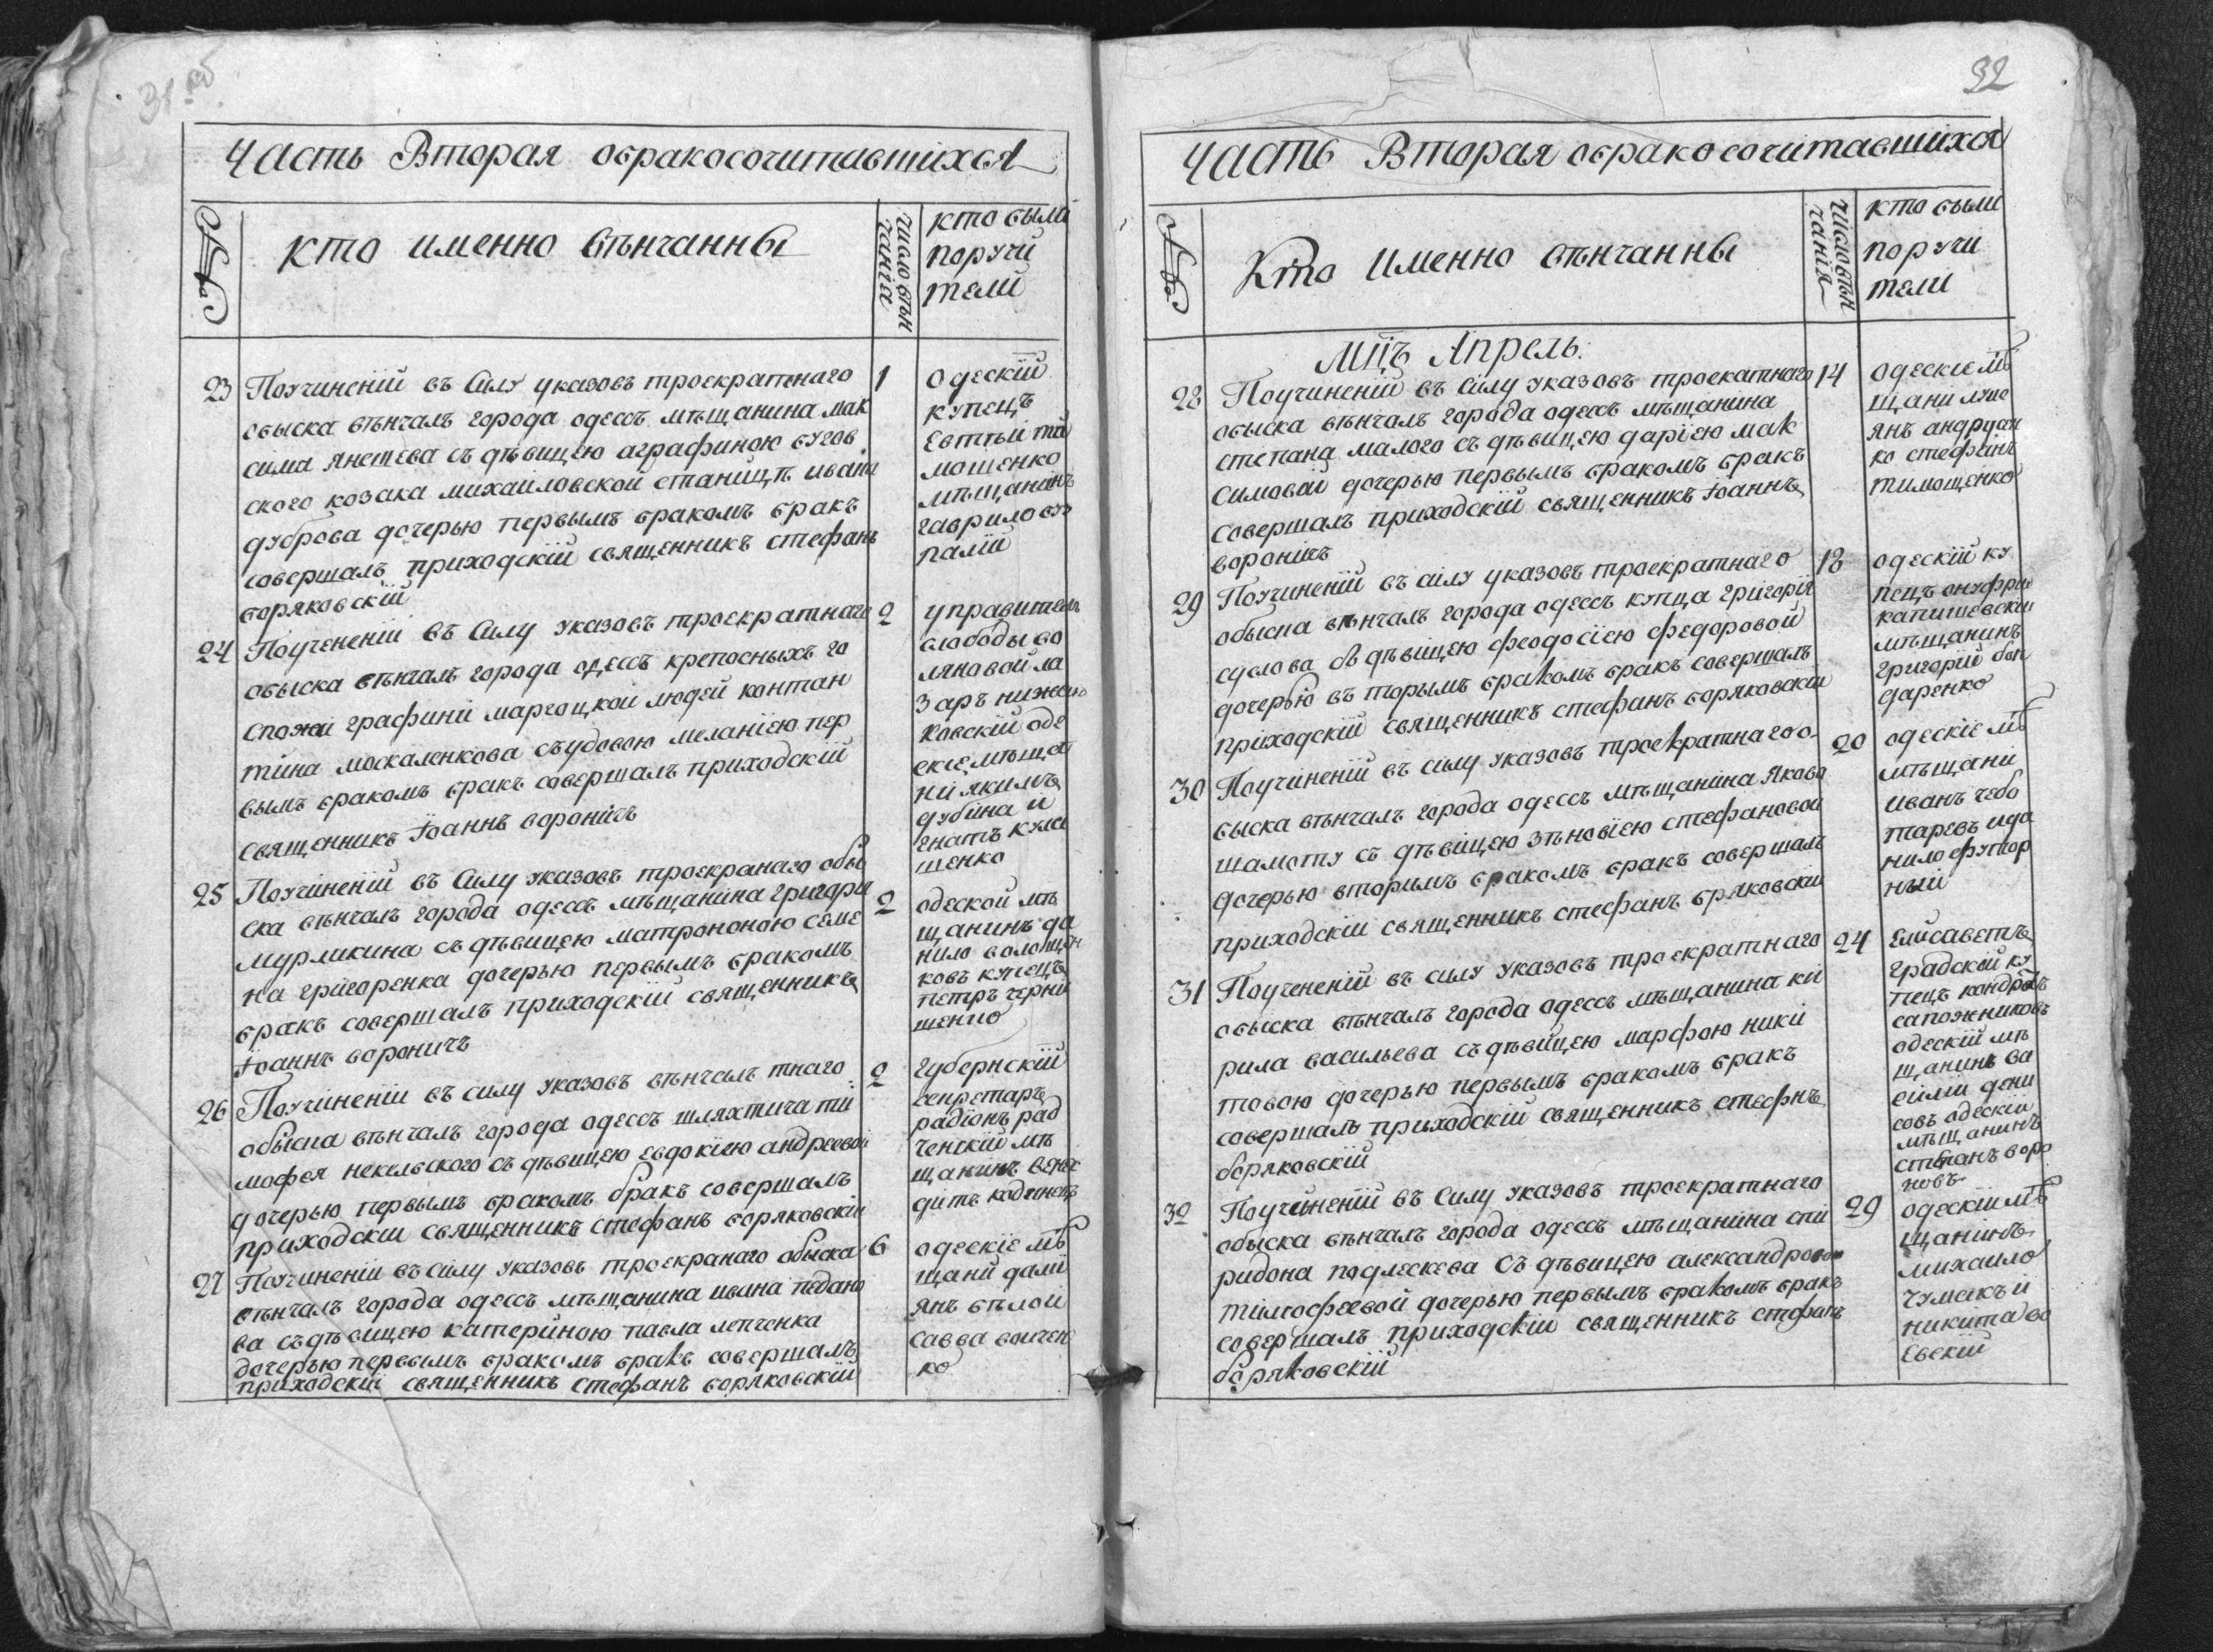 31 об
Часть Вторая обракосочитавшихся
№
кто именно вѣнчанны
число вѣн
чанія
кто были
поручи
тели
23 Поучиненій въ силу указовъ троекратнаго 1
обыска вѣнчалъ города одессъ мѣщанина мак
сима янешева съ дѣвицею аграфиною бугов
ского козака михаиловской станицѣ ивана
дуброва дочерью первымъ бракомъ бракъ
совершалъ приходскій священникъ стефанъ
боряковскій
одескій
купецъ
Евтѣй ти
мошенко
мѣщанинъ
гаврило
палій
24 Поучененій въ силу указовъ троекратнаго 2
обыска вѣнчалъ города одессъ крепосныхъ го
спожи графини маргоцкой людей контан
тина москаленкова съ удовою меланіею пер
вымъ бракомъ бракъ совершалъ приходскій
священникъ Іоаннъ вороничъ
управитель
слободы во
ляновой ла
заръ
ковскій оде
скіе мѣща
ни якимъ
дубина и
гнатъ кула
шенко
25 Поучиненій въ силу указовъ троекранаго обы
ска вѣнчалъ города одессъ мѣщанина григори 2
мурликина съ дѣвицею матрононою семе
на григоренка дочерью первымъ бракомъ
бракъ совершалъ приходскій священникъ
Іоаннъ вороничъ
одеской мѣ
щанинъ да
нило волощен
ковъ купецъ
петръ черни
шенко
26 Поучиненій въ силу указовъ вѣнчалъ тнаго 2
обыска вѣнчалъ города одессъ шляхтича ти
мофея некельского съ дѣвицею евдокіею андреевой
дочерью первымъ бракомъ бракъ совершалъ
приходскій священникъ стефанъ боряковскій
губернскій
секретаръ
радіонъ рад
ченскій мѣ
щанинъ
дитъ
27 Поучиненій въ силу указовъ троекранаго обыска 6
вѣнчалъ города одессъ мѣщанина ивана педано
ва съ дѣвицею катериною павла лепченка
дочерью первымъ бракомъ бракъ совершалъ
приходскій священникъ стефанъ боряковскій
одескіе мѣ
щани дамі
янъ бѣлои
савва воичен
ко
32
Часть Вторая обракосочитавшихся
№
Кто Именно вѣнчанны
число вѣн
чанія
кто были
поручи
тели
Мцъ Апрель:
28 Поучиненій въ силу указовъ троекатнаго 14
обыска вѣнчалъ города одессъ мѣщанина
степана малого съ дѣвицею даріею мак
симовой дочерью первымъ бракомъ бракъ
совершалъ приходскій священникъ Іоаннъ
вороничъ
одескіе мѣ
щани
янъ андрущен
ко стефанъ
тимощенко
29 Поучиненій въ силу указовъ троекратнаго 18
обыска вѣнчалъ города одессъ купца григорія
суслова съ дѣвицею феодосіею федоровой
дочерью въ торымъ бракомъ бракъ совершалъ
приходскій священникъ стефанъ боряковскій
одескій ку
пецъ онуфрій
капишевскій
мѣщанинъ
григорій бон
даренко
30 Поучиненій въ силу указовъ троекратнаго о 20
быска вѣнчалъ города одессъ мѣщанина якова
шамоту съ дѣвицею зѣновіею стефановой
дочерью вторимъ бракомъ бракъ совершалъ
приходскій священникъ стефанъ бряковскій
одескіе мѣ
мѣщани
иванъ чебо
таревъ и да
нило футор
ный
31 Поучененій въ силу указовъ троекратнаго 24
обыска вѣнчалъ города одессъ мѣщанина ки
рила васильева съ дѣвицею марфою ники
товою дочерью первымъ бракомъ бракъ
совершалъ приходскій священникъ стефнъ
боряковскій
Елисаветъ
градскій ку
пецъ кондратъ
сапожниковъ
одескій мѣ
щанинъ ва
силий дени
совъ одескій
мѣщанинъ
степанъ воро
новъ
32 Поучиненій въ силу указовъ троекратнаго 29
обыска вѣнчалъ города одессъ мѣщанина спи
ридона подлескева съ дѣвицею александровою
тимофеевой дочерью первымъ бракомъ бракъ
совершалъ приходскій священникъ стфанъ
боряковскій
одескій мѣ
щанинъ
михаило
чумакъ и
никита во
евскій